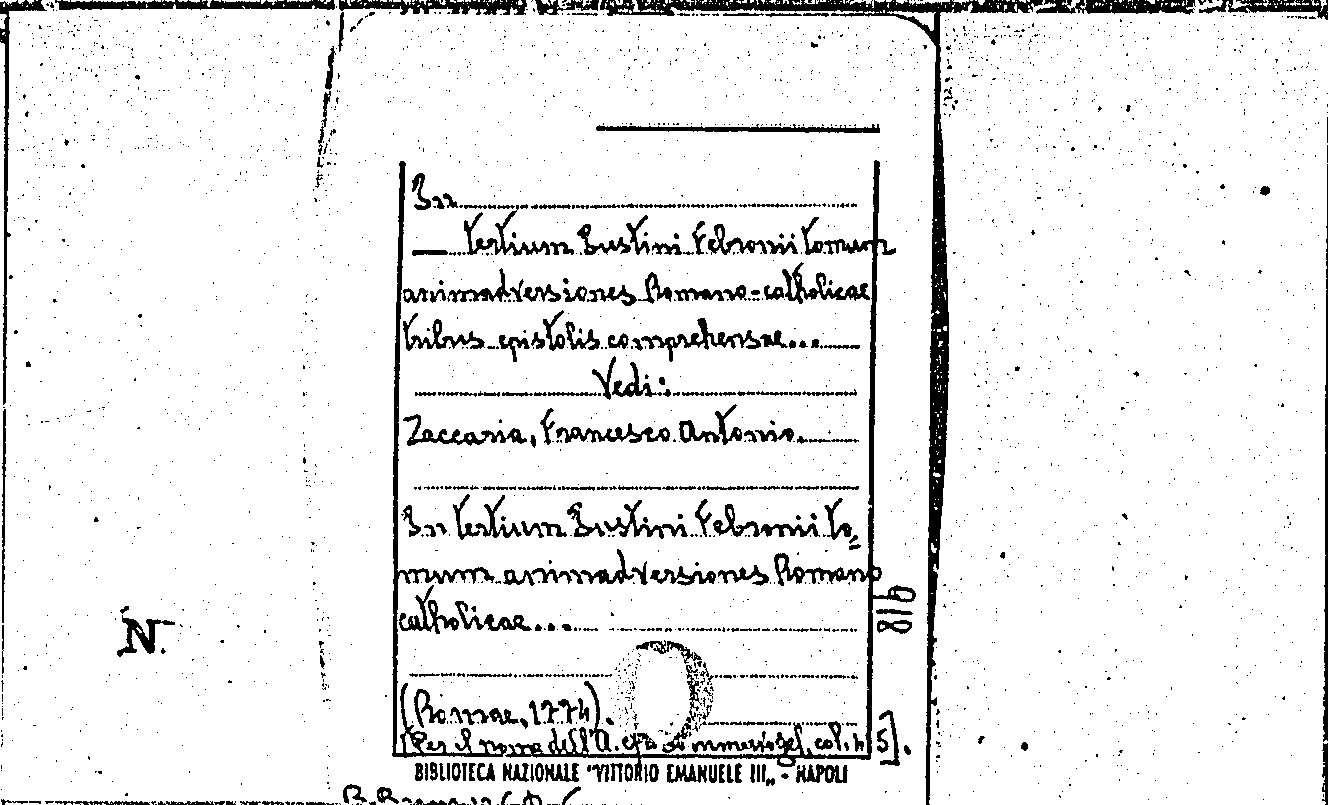 In
— tertium Iustini Febronii tomum
animadversiones Romano-catholicae
tribus epistolis comprehensae...
Vedi:
Zaccaria, Francesco Antonio.
In tertium Iustini Febronii to=
mum animadversiones Romano
catholicae...
(Romae, 1774).
[Per il nome dell'A. cfr. Sommervogel, col. 5].
BIBLIOTECA NAZIONALE "VITTORIO EMANUELE III„ - NAPOLI
N.
81b